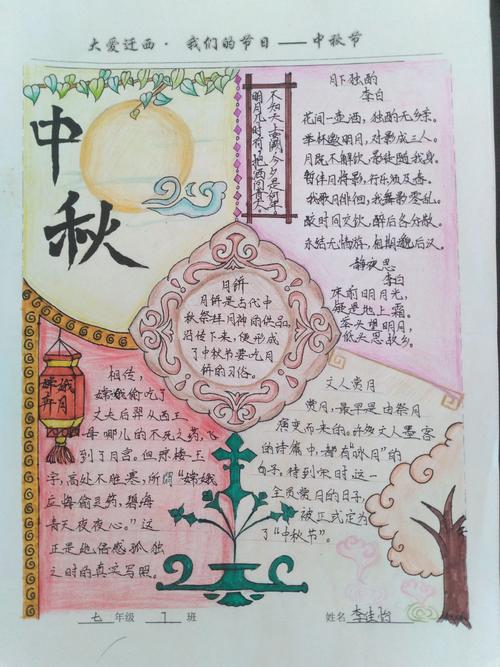 大爱迁西·我们的节日——中秋节
中秋
明月几时有,把酒问青天。
不知天上宫阙,今夕是何年。
月下独酌
李白
花间一壶酒,独酌无相亲。
举杯邀明月,对影成三人。
月既不解饮,影徒随我身。
暂伴月将影,行乐须及春。
我歌月徘徊,我舞影零乱。
醒时同交饮,醉后各分散。
永结无情游,相期邈云汉。
静夜思
李白
床前明月光,
疑是地上霜。
举头望明月,
低头思故乡。
月饼
月饼是古代中
秋祭拜月神的供品,
沿传下来,便形成
了中秋节要吃月
饼的习俗。
嫦娥
奔月
相传,
嫦娥偷吃了
丈夫后羿从西王
母哪儿的不死之药,飞
到了月宫。但琼楼玉
宇,高处不胜寒,所谓“嫦娥
应悔偷灵药,碧海
青天夜夜心。”这
正是她倍感孤独
之时的真实写照。
文人赏月
赏月,最早是由祭月
演变而来的。许多文人墨客
的诗篇中,都有“咏月”的
句子,待到宋时,这一
全员赏月的日子,
被正式定为
了“中秋节”。
七年级 7 班
姓名 李佳怡